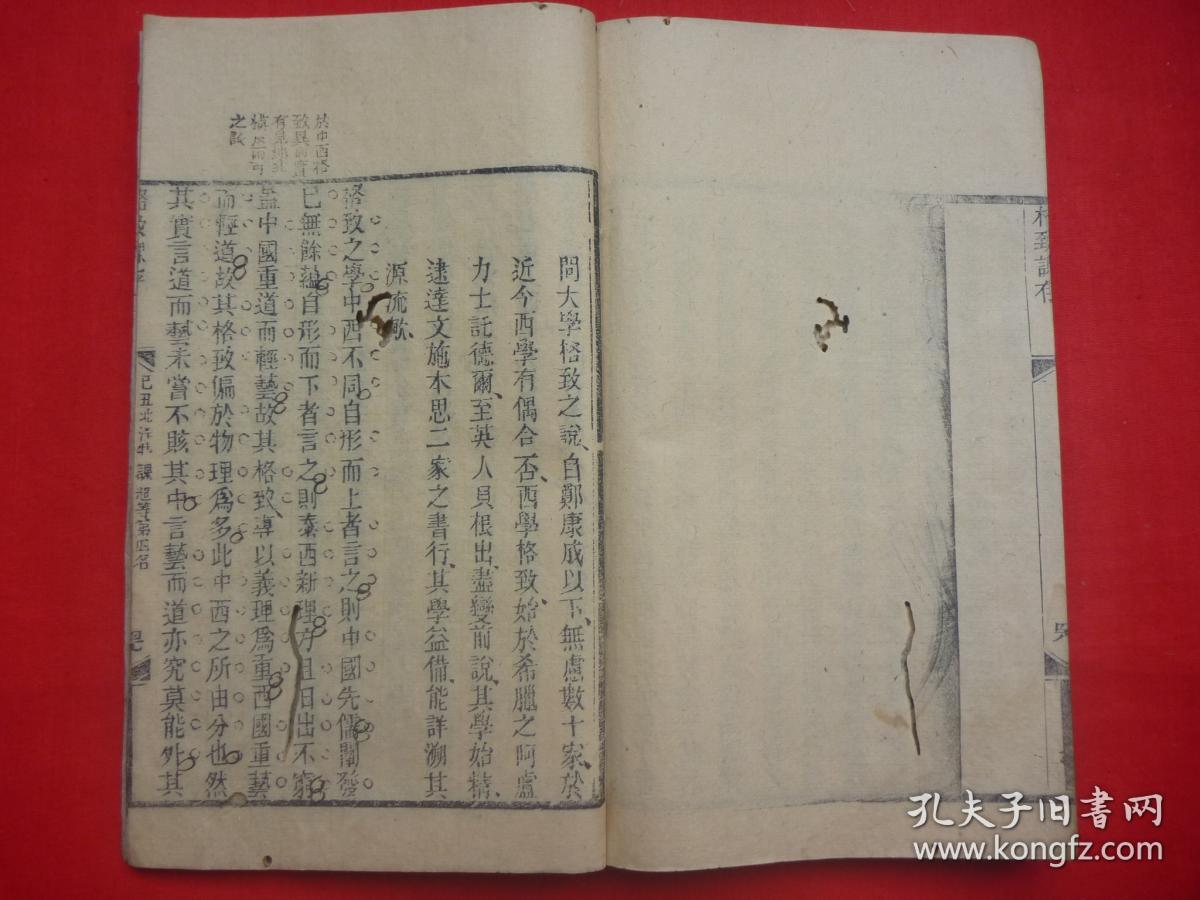 格致課存
問大學格致之說自鄭康成以下無慮數十家於
近今西學有偶合否西學格致始於希臘之阿盧
力士託德爾至英人貝根出盡變前說其學始精
逮達文施本思二家之書行其學益備能詳溯其
源流歟
格致之學中西不同自形而上者言之則中國先儒闡發
已無餘蘊自形而下者言之則泰西新理方且日出不窮
蓋中國重道而輕藝故其格致專以義理爲重西國重藝
而輕道故其格致偏於物理爲多此中西之所由分也然
其實言道而藝未嘗不賅其中言藝而道亦究莫能外其
於中西格
致異同實
有見地非
之談
格致課存
己丑北洋 課 超等第四名
孔夫子旧书网
www.kongfz.com